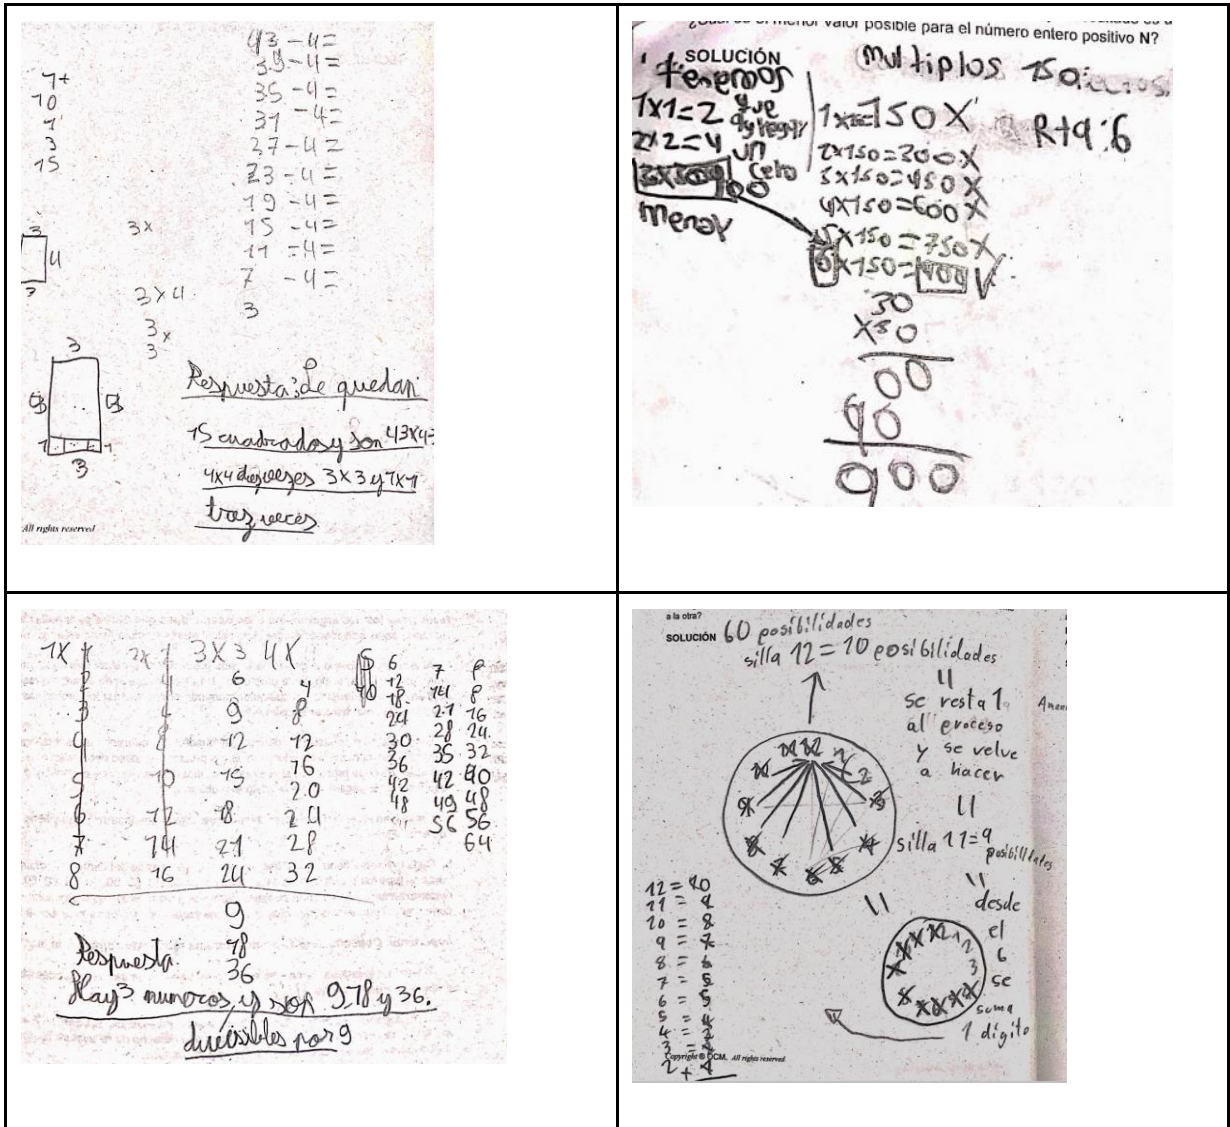 43-4=
39-4=
35-4=
31-4=
27-4=
23-4=
19-4=
15-4=
11-4=
7-4=
3
7+
10
1
3
15
3
4
3
3x
3x4
3x
3
3
1
1
3
Respuesta: Le quedan
15 cuadrados y son 43x4=
4x4 diez veses 3x3 y 1x1
trez veces
All rights reserved
menor valor posible para el número entero positivo N?
SOLUCIÓN
tenemos
que
agregar
un
cero
1x1=2
2x2=4
menor
multiplos 150
150X
2x150=300X
3x150=450X
4x150=600X
5x150=750X
6x150=900 √
Rta:6
30
x30
00
90
900
1X 2X 3X3 4X
2 4 6 4
3 6 9 8
4 8 12 12
5 10 15 16
20
6 12 18 24
7 14 21 28
8 16 24 32
6
12
18
24
30
36
42
48
7
14
21
28
35
42
49
56
8
8
16
24
32
40
48
56
64
9
18
36
Respuesta
Hay 3 numeros, y son 9,18 y 36.
divisibles por 9
a la otra?
SOLUCIÓN 60 posibilidades
silla 12=10 posibilidades
se resta 1
al proceso
y se velve
a hacer
silla 11=9
posibilidades
desde
el
6
se
suma
1 dígito
12=10
11=9
10=8
9=7
8=6
7=5
6=5
5=4
4=3
Copyright® OCM. All rights reserved